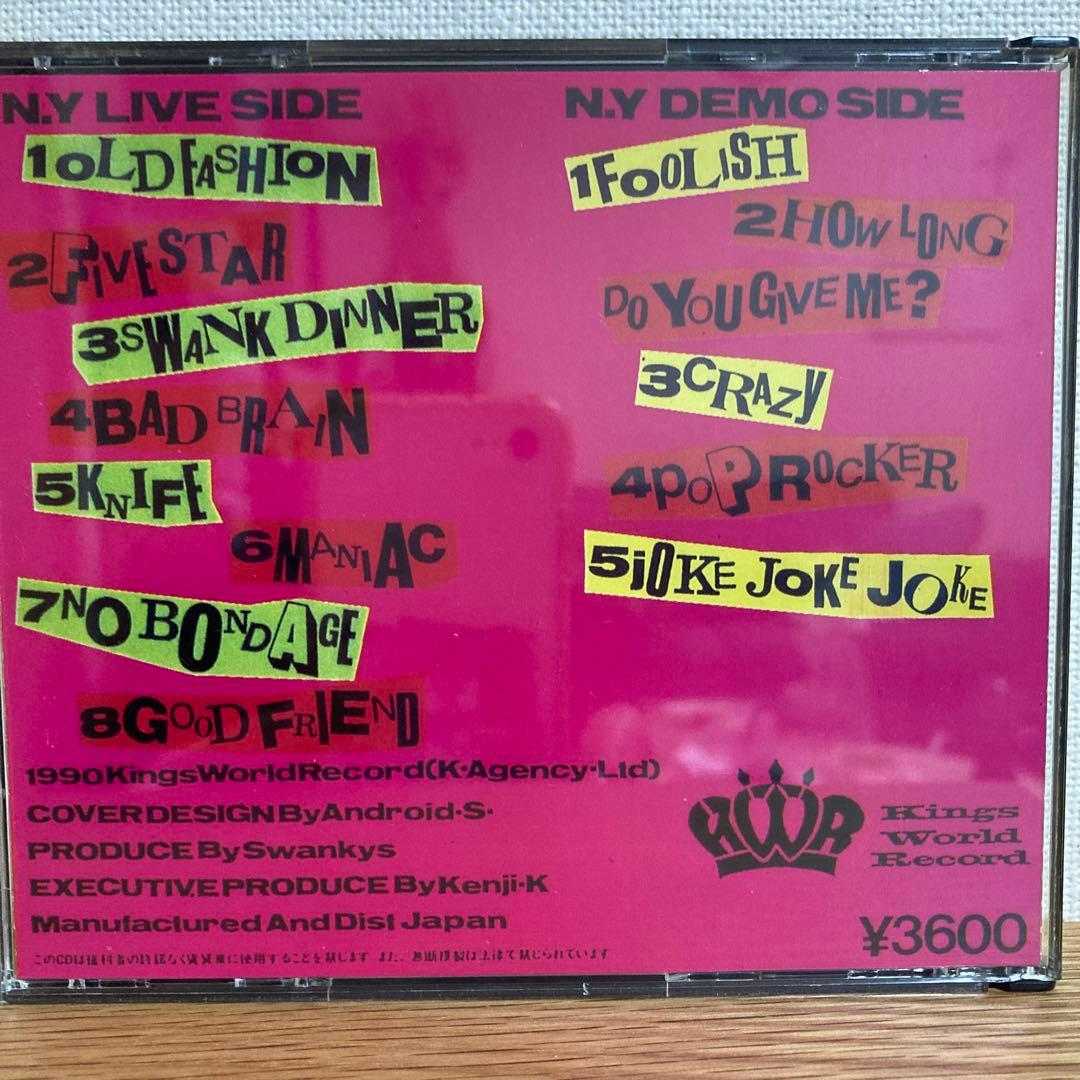 N.Y LIVE SIDE
1OLD FASHION
2FIVE STAR
3SWANK DINNER
4BAD BRAIN
5KNIFE
6MANIAC
7NO BONDAGE
8GOOD FRIEND
N.Y DEMO SIDE
1FOOLISH
2HOW LONG
DO YOU GIVE ME?
3CRAZY
4POP ROCKER
5JOKE JOKE JOKE
1990KingsWorldRecord(K·Agency·Ltd)
COVER DESIGN By Android·S·
PRODUCE By Swankys
EXECUTIVE PRODUCE By Kenji·K
Manufactured And Dist Japan
このCDは権利者の許諾なく賃貸業に使用することを禁じます また、無断複製は法律で禁じられています
KWR
Kings
World
Record
¥3600